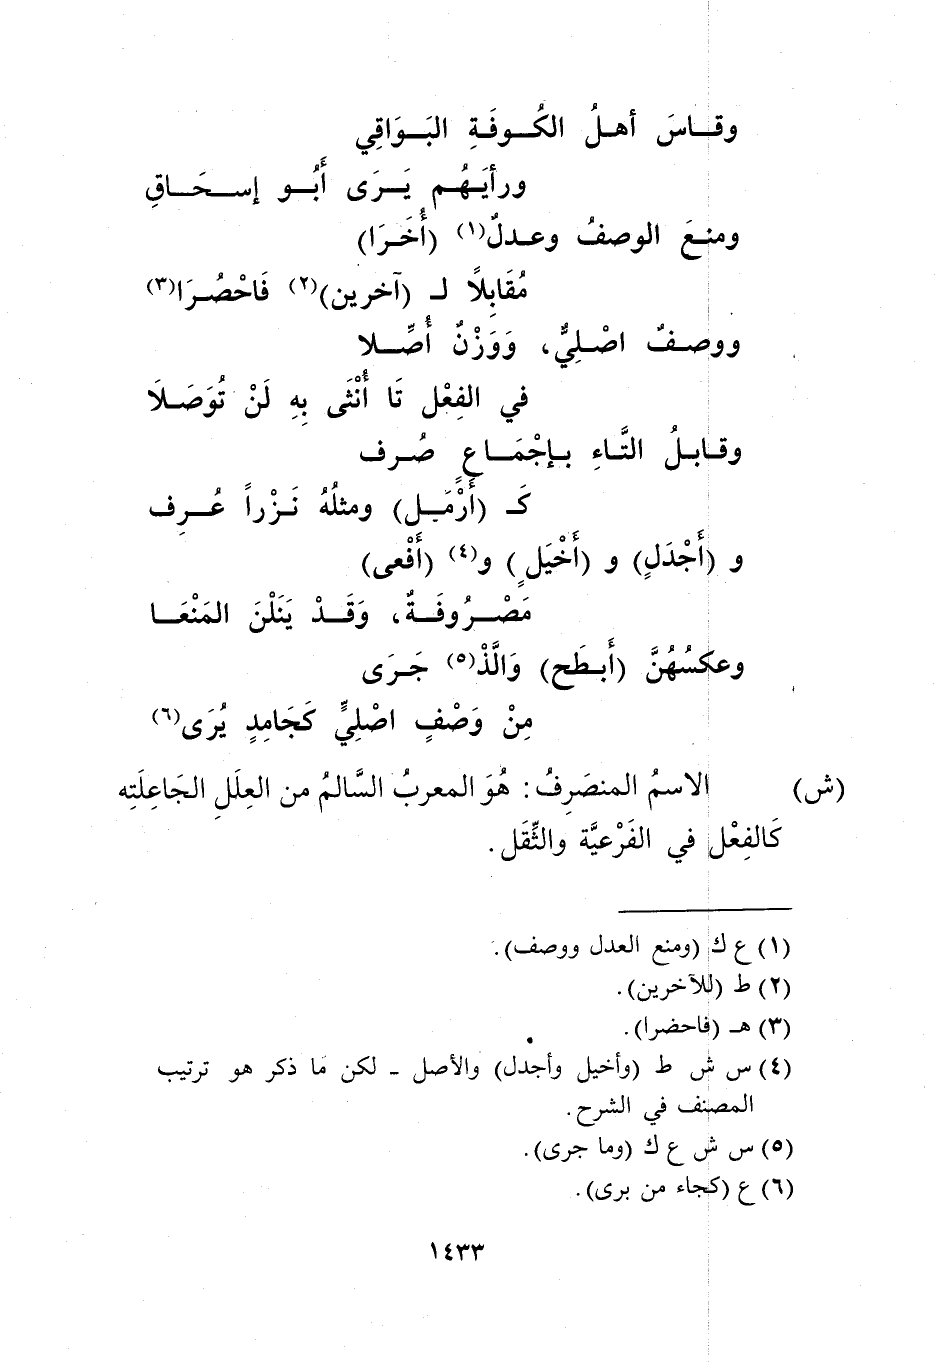 وقــاسَ أهــلُ الكُــوفَـةِ البَـوَاقِي
ورأيَـهُـم يَــرَى أَبُــو إســحَــاقِ
ومنـعَ الوصفُ وعـدلٌ(١) (أُخَـرَا)
مُقَابِلًا لـ (آخرين)(٢) فَاحْصُـرَا(٣)
ووصـفٌ اصْـلِيٌّ، وَوَزْنٌ أُصِّــلا
في الفِعْل تَا أُنْثَى بِهِ لَنْ تُوَصَـلَا
وقـابـلُ التَّـاءِ بـإجْمَــاعٍ صُـرف
كَـ (أَرْمَـل) ومثلُهُ نَـزْراً عُـرِف
و (أَجْدَلٍ) و (أَخْيَلٍ) و(٤) (أَفْعى)
مَصْــرُوفَـةٌ، وَقَــدْ يَنَلْنَ المَنْعَــا
وعكسُهُنَّ (أَبـطَح) وَالَّذْ(٥) جَـرَى
مِنْ وَصْفٍ اصْلِيٍّ كَجَامِدٍ يُرَى(٦)
(ش) الاسمُ المنصَرِفُ: هُوَ المعربُ السَّالمُ من العِلَلِ الجَاعِلَتِه
كَالفِعْل في الفَرْعيَّة والثِّقَل.
(١) ع ك (ومنع العدل ووصف).
(٢) ط (للآخرين).
(٣) هـ (فاحضرا).
(٤) س ش ط (وأخيل وأجدل) والأصل ـ لكن مَا ذكر هو ترتيب
المصنف في الشرح.
(٥) س ش ع ك (وما جرى).
(٦) ع (كجاء من برى).
١٤٣٣